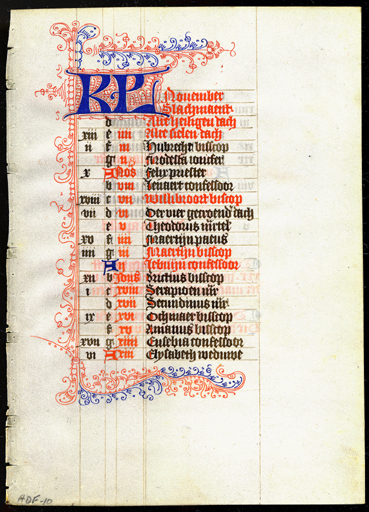 KL
November
Slachmaent
d Alre heiligen dach
xiii e iiii Alre sielen dach
ii f iii Hubrecht bisscop
g ii
x A Nos felix priester
b viii Lenaert confessoor
xviii c vii Willibroort bisscop
vii d vi Der vier gecroende dach
e v Theodorus mr
xv f iiii Maertijn paeus
iiii g iii Maertijn bisscop
A ii Lebuijn confessoor
xii b Idus brictius bisscop
i c xviii Serapioen mr
d xvii Secundinus mr
ix e xvi Othmaer bisscop
f xv Amianus bisscop
xvii g xiiii Eusebia confessoor
vi A xiii Elysabeth weduwe
HDF-10